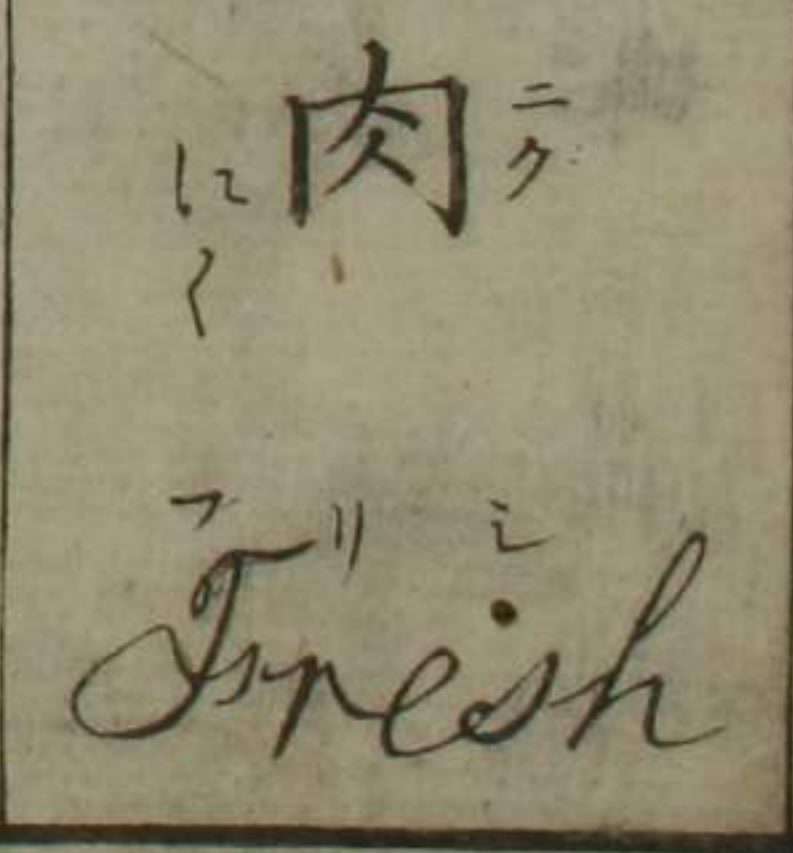 肉
ニク
にく
フリシ
Fresh